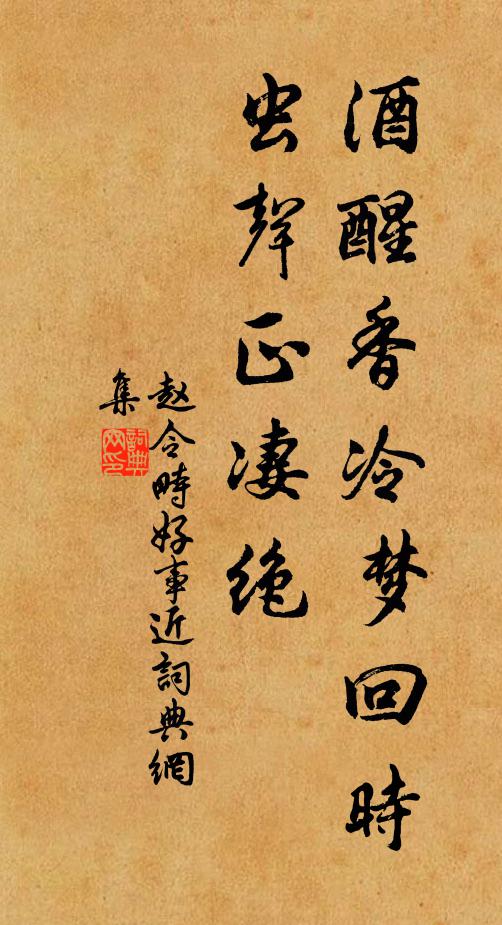 酒醒香冷梦回時
虫聲正凄绝
赵令時好事近詞典網
集
詞典網印